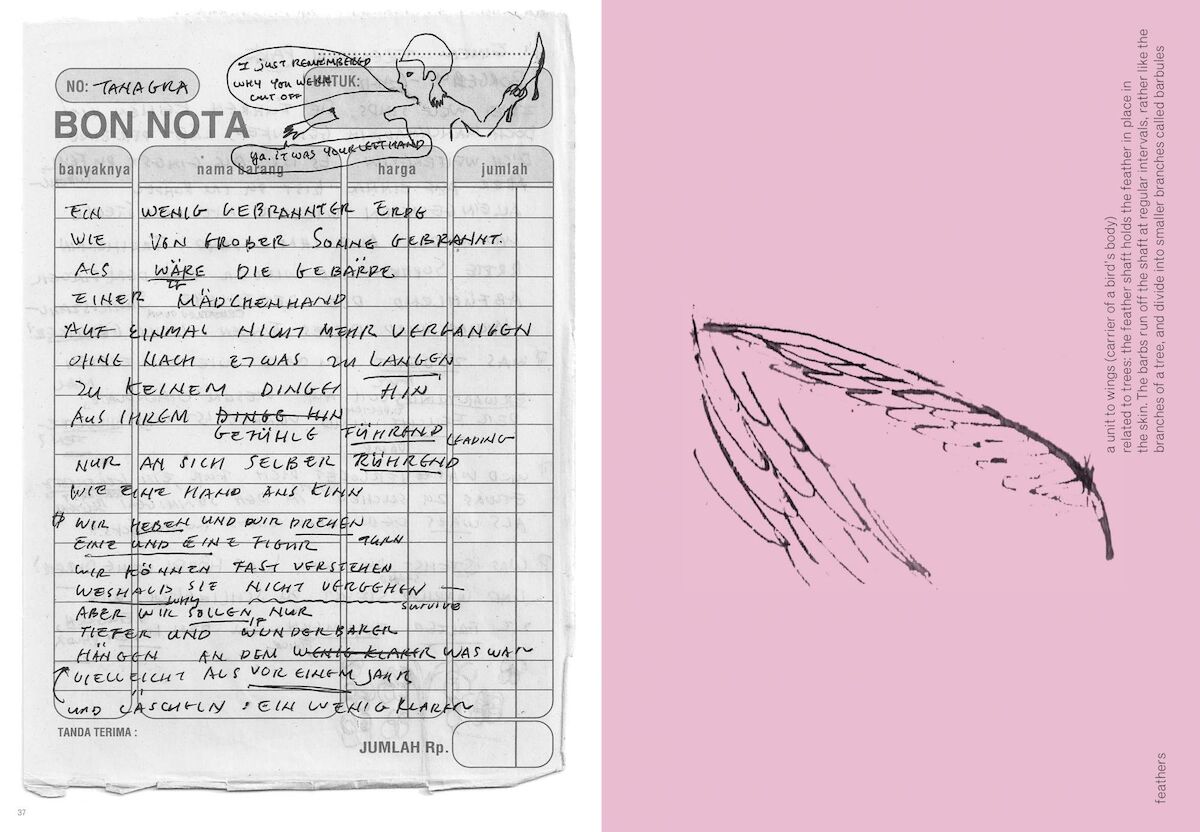 I JUST REMEMBERED
WHY YOU WERE
CUT OFF
NO: TANAGRA
UNTUK:
BON NOTA
Ya. IT WAS YOUR LEFT HAND
banyaknya nama barang harga jumlah
EIN WENIG GEBRANNTER ERDE
WIE VON GROßER SONNE GEBRANNT.
ALS WÄRE DIE GEBÄRDE
IF
EINER MÄDCHENHAND
AUF EINMAL NICHT MEHR VERGANGEN
OHNE NACH ETWAS ZU LANGEN
ZU KEINEM DINGE HIN
AUS IHREM DINGE HIN
GEFÜHLE FÜHREND LEADING
NUR AN SICH SELBER RÜHREND
WIE EINE HAND ANS KINN
WIR HEBEN UND WIR DREHEN
EINE UND EINE FIGUR TURN
WIR KÖNNEN FAST VERSTEHEN
WESHALB SIE NICHT VERGEHEN —
WHY SURVIVE
ABER WIR SOLLEN NUR
IF
TIEFER UND WUNDERBARER
HÄNGEN AN DEM WENIG KLARER WAS WAR
VIELLEICHT ALS VOR EINEM JAHR
UND LÄSCHELN : EIN WENIG KLARER
TANDA TERIMA :
JUMLAH Rp.
37
a unit to wings (carrier of a bird's body)
related to trees: the feather shaft holds the feather in place in
the skin. The barbs run off the shaft at regular intervals, rather like the
branches of a tree, and divide into smaller branches called barbules
feathers